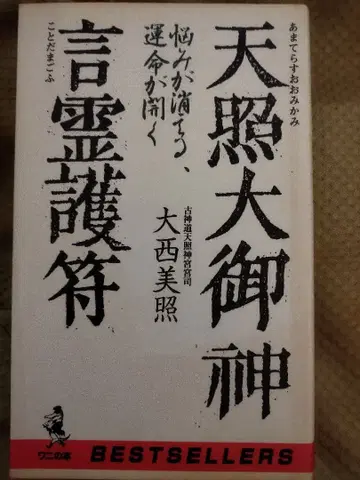 あまてらすおおみかみ
天照大御神
古神道天照神宮宮司
大西美照
悩みが消える、
運命が開く
言霊護符
ことだまごふ
ワニの本
BESTSELLERS